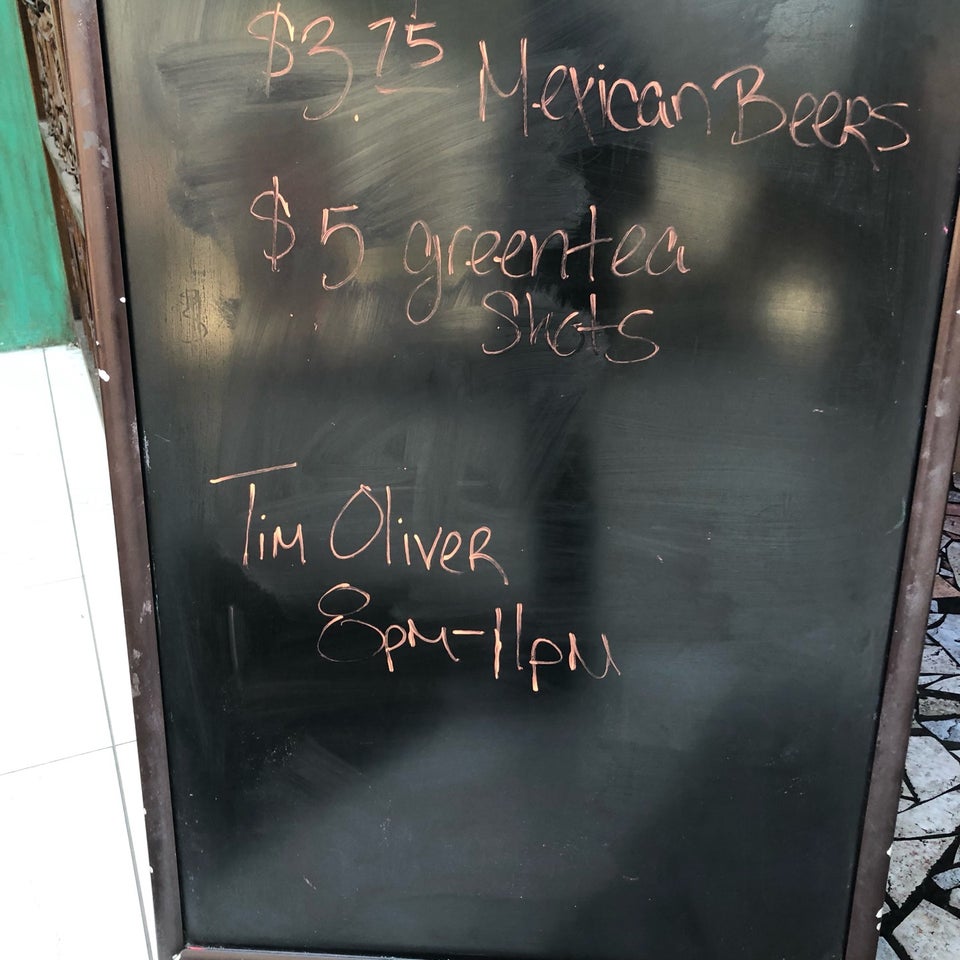 $3.75 Mexican Beers
$5 green tea
Shots
Tim Oliver
8pm-11pm